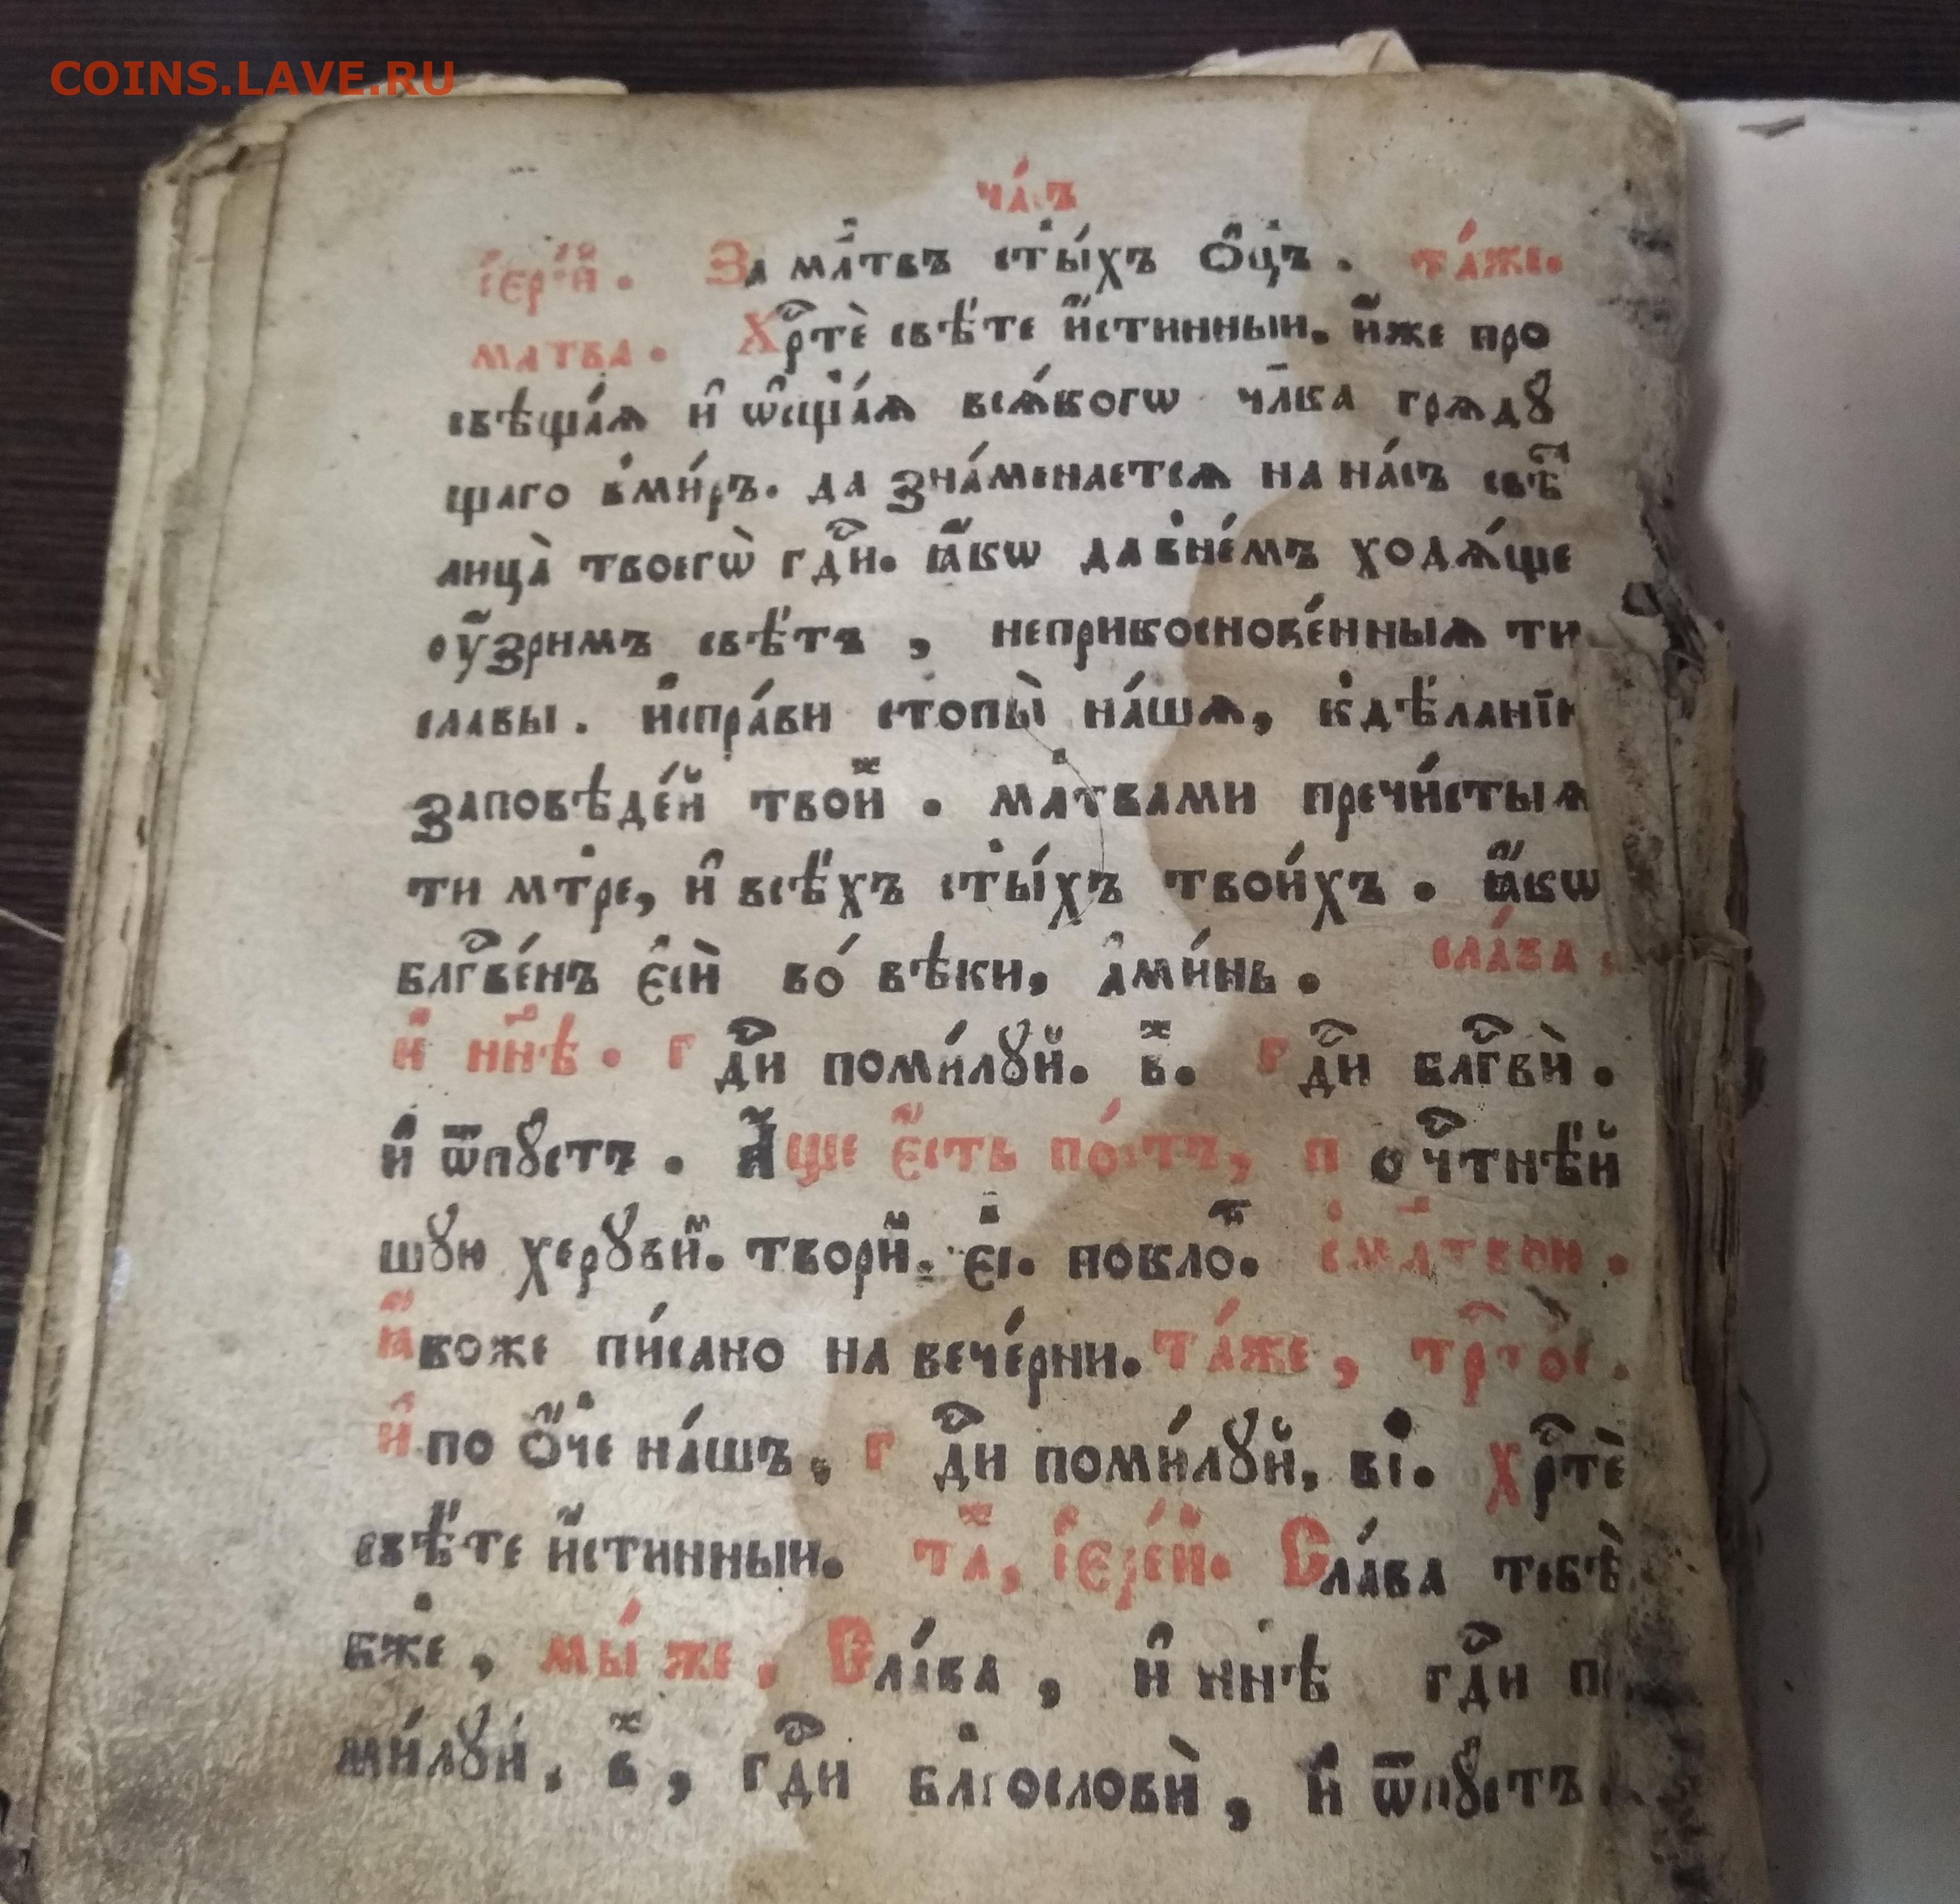 COINS.LAVE.RU
ча́съ
і҆ере́й. За мл҃твъ ст҃ы́хъ ѻ҆ц҃ъ. та́же.
мл҃тва. Хрⷭ҇тѐ свѣ́те и҆́стинныи. и҆́же про
свѣща́ѧ и҆ ѡ҆сщ҃а́ѧ всѧ́когѡ чл҃ка грѧдꙋ
щаго в̾ми́ръ. да зна́менаетсѧ на на́съ свѣⷮ
лица̀ твоегѡ̀ гдⷭ҇и. ꙗ҆́кѡ да в̾не́мъ ходѧ́ще
оу҆́зримъ свѣ́тъ, неприкоснове́нныѧ ти
славы. и҆спра́ви стопы̀ на́шѧ, к̾дѣ́ланїи
заповѣде́й твоиⷯ. мл҃твами пречи́стыѧ
ти мт҃ре, и҆ всѣ́хъ ст҃ы́хъ твои́хъ. ꙗ҆́кѡ
блгⷭ҇ве́нъ є҆сѝ во́ вѣки, а҆ми́нь. сла́ва.
и҆ нн҃ѣ. гдⷭ҇и поми́лꙋй. вⷤ. гдⷭ҇и блгⷭ҇вѝ.
и҆ ѿпꙋстъ. А҆́ще є҆́сть по́стъ, по чтⷭ҇нѣ́й
шꙋю херꙋвиⷨ. твориⷨ. є҃і. поклоⷩ҇. с̾мл҃твои.
ꙗ҆́коже пи́сано на вече́рни. та́же, трⷭ҇то́е.
и҆ по ѻ҆́ч҃е на́шъ, гдⷭ҇и поми́лꙋй, в҃і. хрⷭ҇тѐ
свѣ́те и҆́стинныи. таⷤ, і҆ере́й. Сла́ва тебѣ̀
бж҃е, мы́ же, Сла́ва, и҆ нн҃ѣ гдⷭ҇и по
ми́лꙋй, вⷤ, гдⷭ҇и блг҃ословѝ, и҆ ѿпꙋстъ.